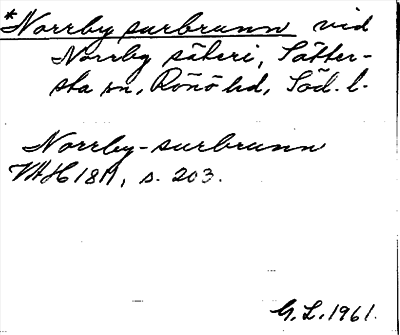 *Norrby surbrunn vid
Norrby säteri, Sätter-
sta sn, Rönö hd, Söd. l.
Norrby-surbrunn
VAH 1819, s. 203.
G.L. 1961.